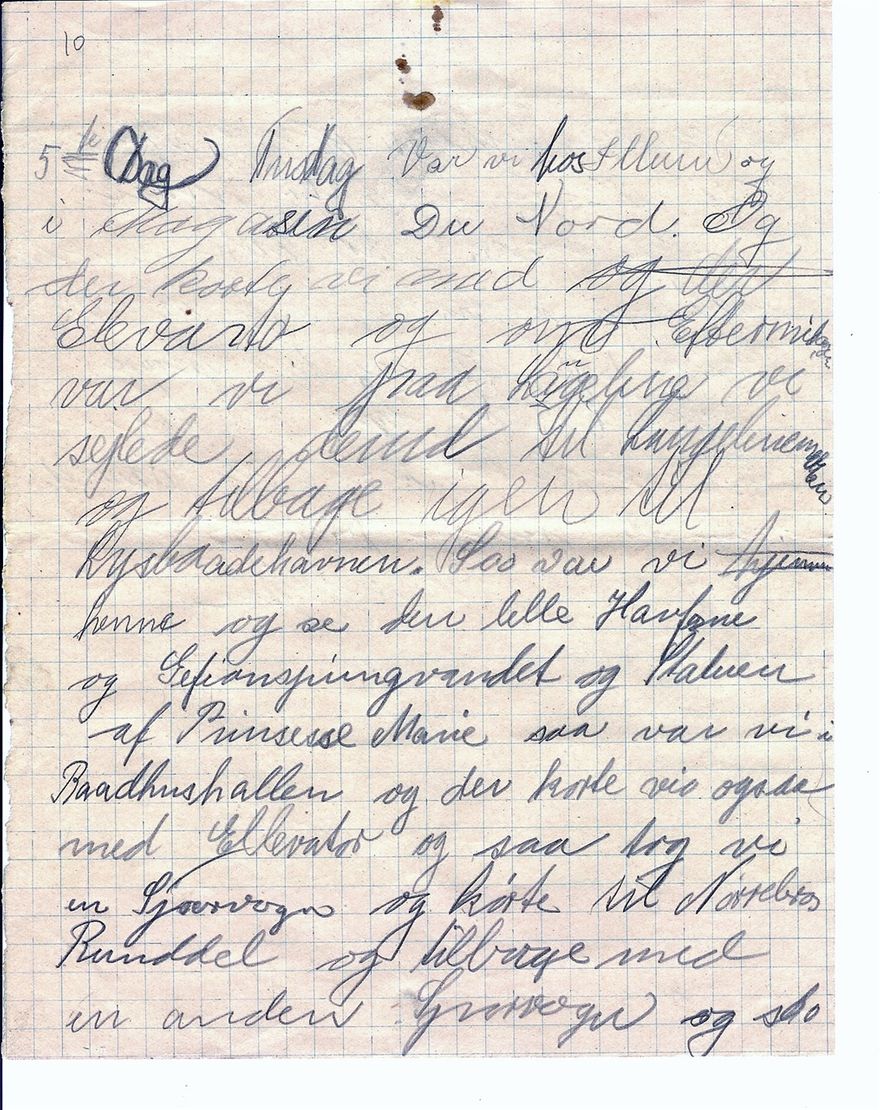 10
5 te Dag Tirsdag var vi hos Illum og
i Magasin Du Nord. Og
der kørte vi med og der
Elevarto og om Eftermiddagen
var vi paa Langeline vi
sejlede derud til Langelinem
og tilbage igen til
Lysbaadehavnen. Saa var vi hjemme
henne og se den lille Havfrue
og Gefionspringvandet og Statuen
af Prinsesse Marie saa var vi i
Raadhushallen og der kørte vi ogsaa
med Ellevator og saa tog vi
en Sporvogn og kørte til Nørrebros
Runddel og tilbage med
en anden Sporvogn og